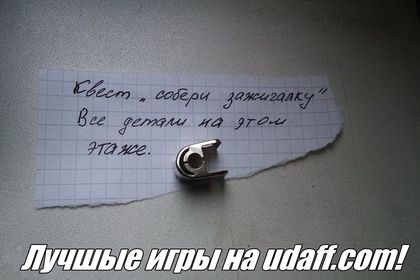 Квест „собери зажигалку"
Все детали на этом
этаже.
Лучшые игры на udaff.com!